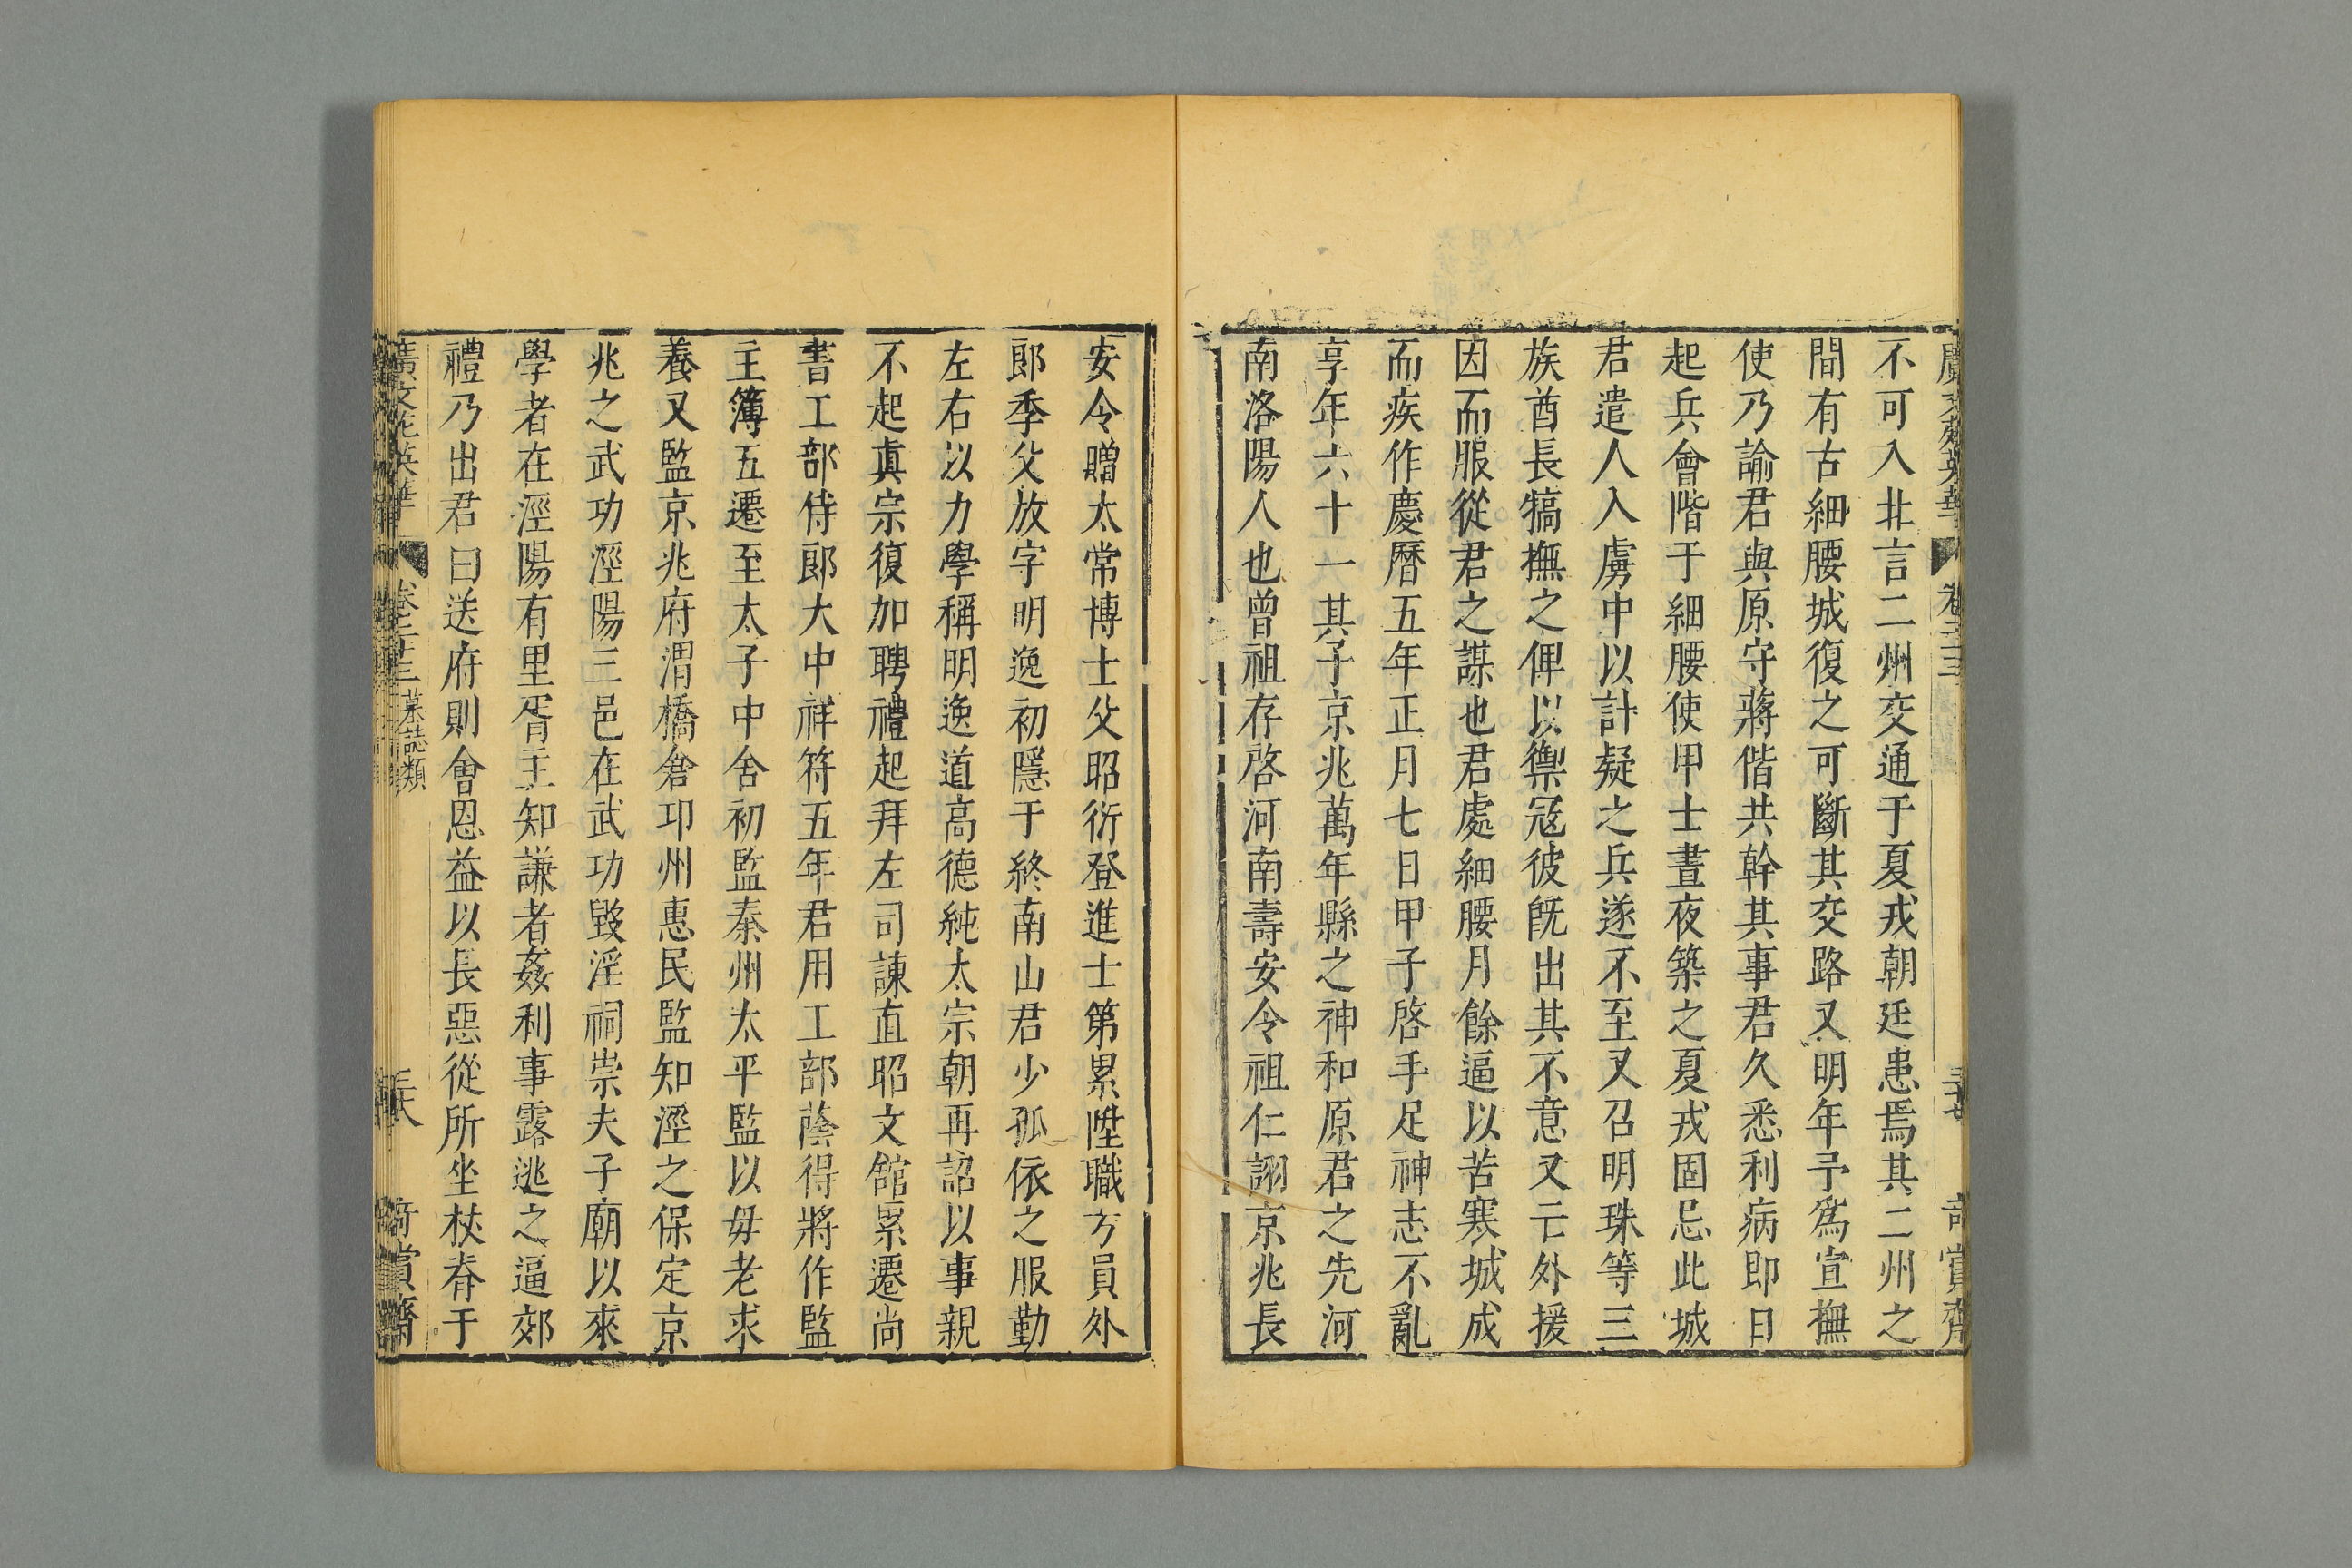 不可入北言二州交通于夏戎朝廷患焉其二州之
間有古細腰城復之可斷其交路又明年予爲宣撫
使乃諭君與原守蔣偕共幹其事君久悉利病即日
起兵會階于細腰使甲士晝夜築之夏戎固忌此城
君遣人入虜中以計疑之兵遂不至又召明珠等三
族酋長犒撫之俾以禦寇彼旣出其不意又亡外援
因而服從君之謀也君處細腰月餘逼以苦寒城成
而疾作慶曆五年正月七日甲子啓手足神志不亂
享年六十一其子京兆萬年縣之神和原君之先河
南洛陽人也曾祖存啓河南壽安令祖仁詡京兆長
安令贈太常博士父昭衍登進士第累陞職方員外
郎季父放字明逸初隱于終南山君少孤依之服勤
左右以力學稱明逸道高德純太宗朝再詔以事親
不起眞宗復加聘禮起拜左司諫直昭文館累遷尚
書工部侍郎大中祥符五年君用工部蔭得將作監
主簿五遷至太子中舍初監秦州太平監以毋老求
養又監京兆府渭橋倉邛州惠民監知涇之保定京
兆之武功涇陽三邑在武功毀淫祠崇夫子廟以來
學者在涇陽有里胥王知謙者姦利事露逃之逼郊
禮乃出君曰送府則會恩益以長惡從所坐杖脊于
廣文苑英華
卷二十三
墓誌類
奇賞齋